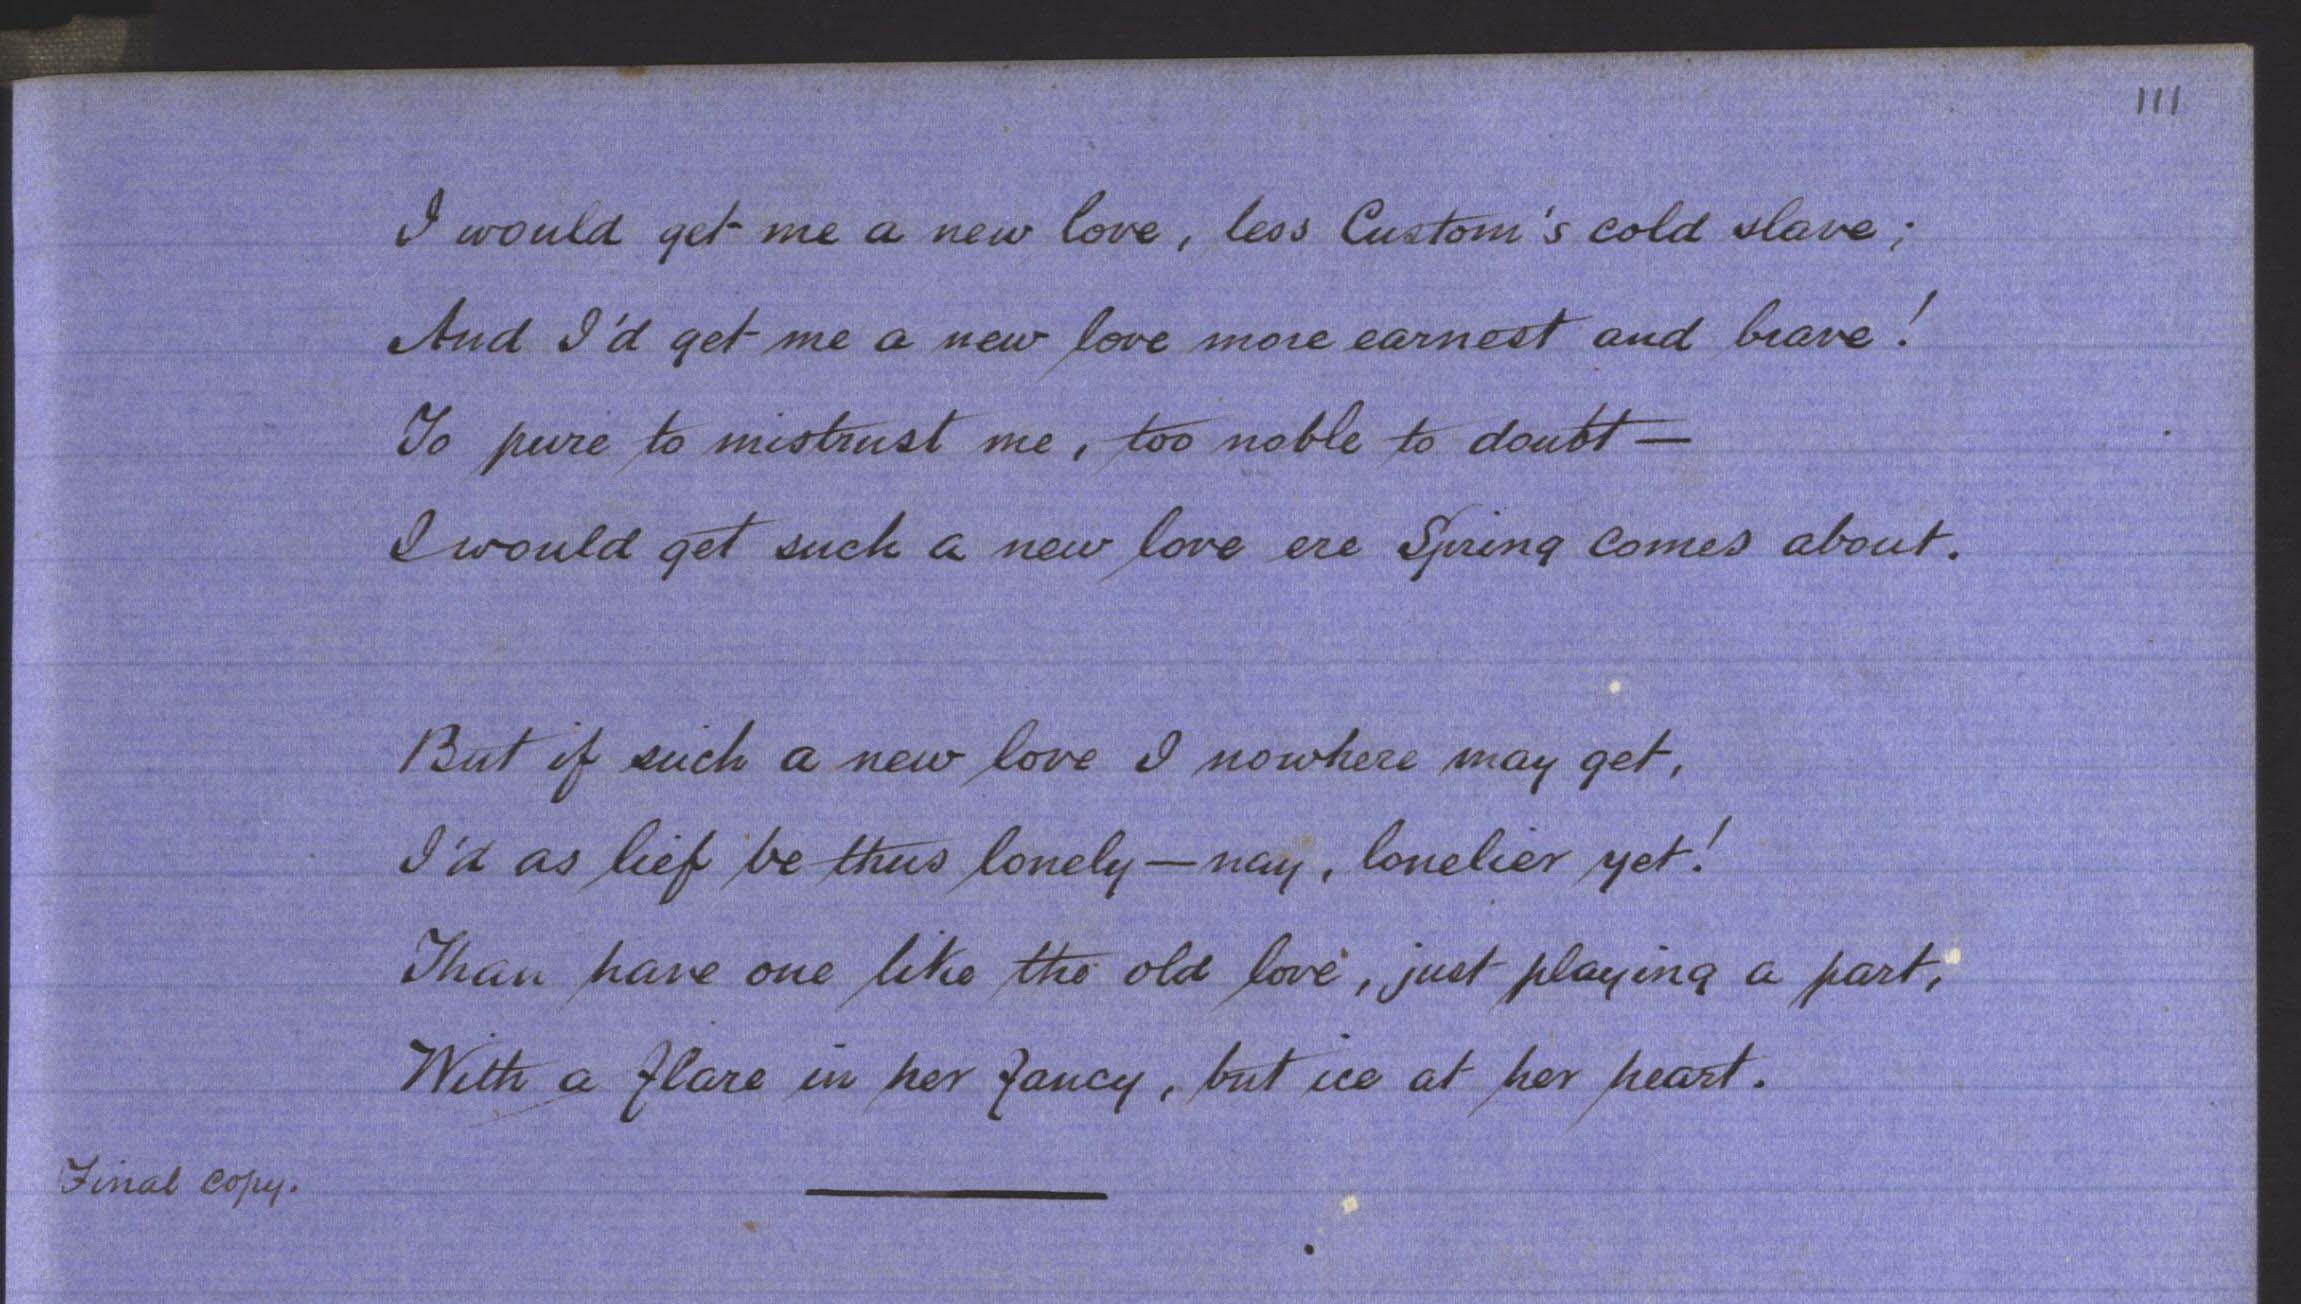 111
I would get me a new love, less Custom's cold slave;
And I'd get me a new love more earnest and brave!
To pure to mistrust me, too noble to doubt —
I would get such a new love ere Spring comes about.
But if such a new love I nowhere may get,
I'd as lief be thus lonely — nay, lonelier yet!
Than have one like the old love, just playing a part,
With a flare in her fancy, but ice at her heart.
Final copy.